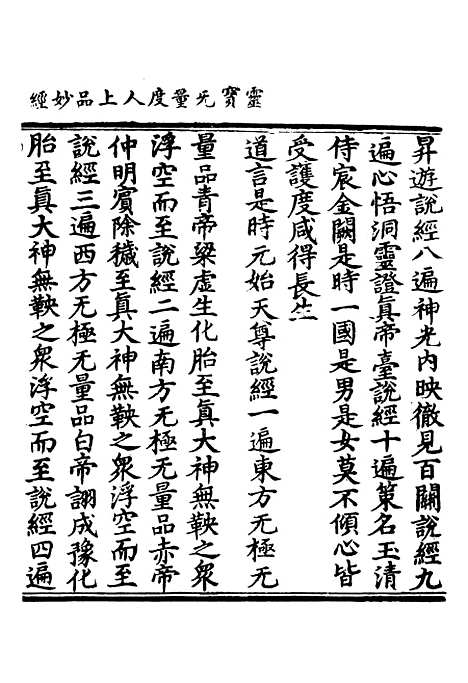 靈寶无量度人上品妙經
昇遊說經八遍神光內映徹見百關說經九
遍心悟洞靈證眞帝臺說經十遍策名玉清
侍宸金闕是時一國是男是女莫不傾心皆
受護度咸得長生
道言是時元始天尊說經一遍東方无極无
量品青帝梁虛生化胎至眞大神無鞅之衆
浮空而至說經二遍南方无極无量品赤帝
仲明賔除穢至眞大神無鞅之衆浮空而至
說經三遍西方无極无量品白帝詡成豫化
胎至眞大神無鞅之衆浮空而至說經四遍